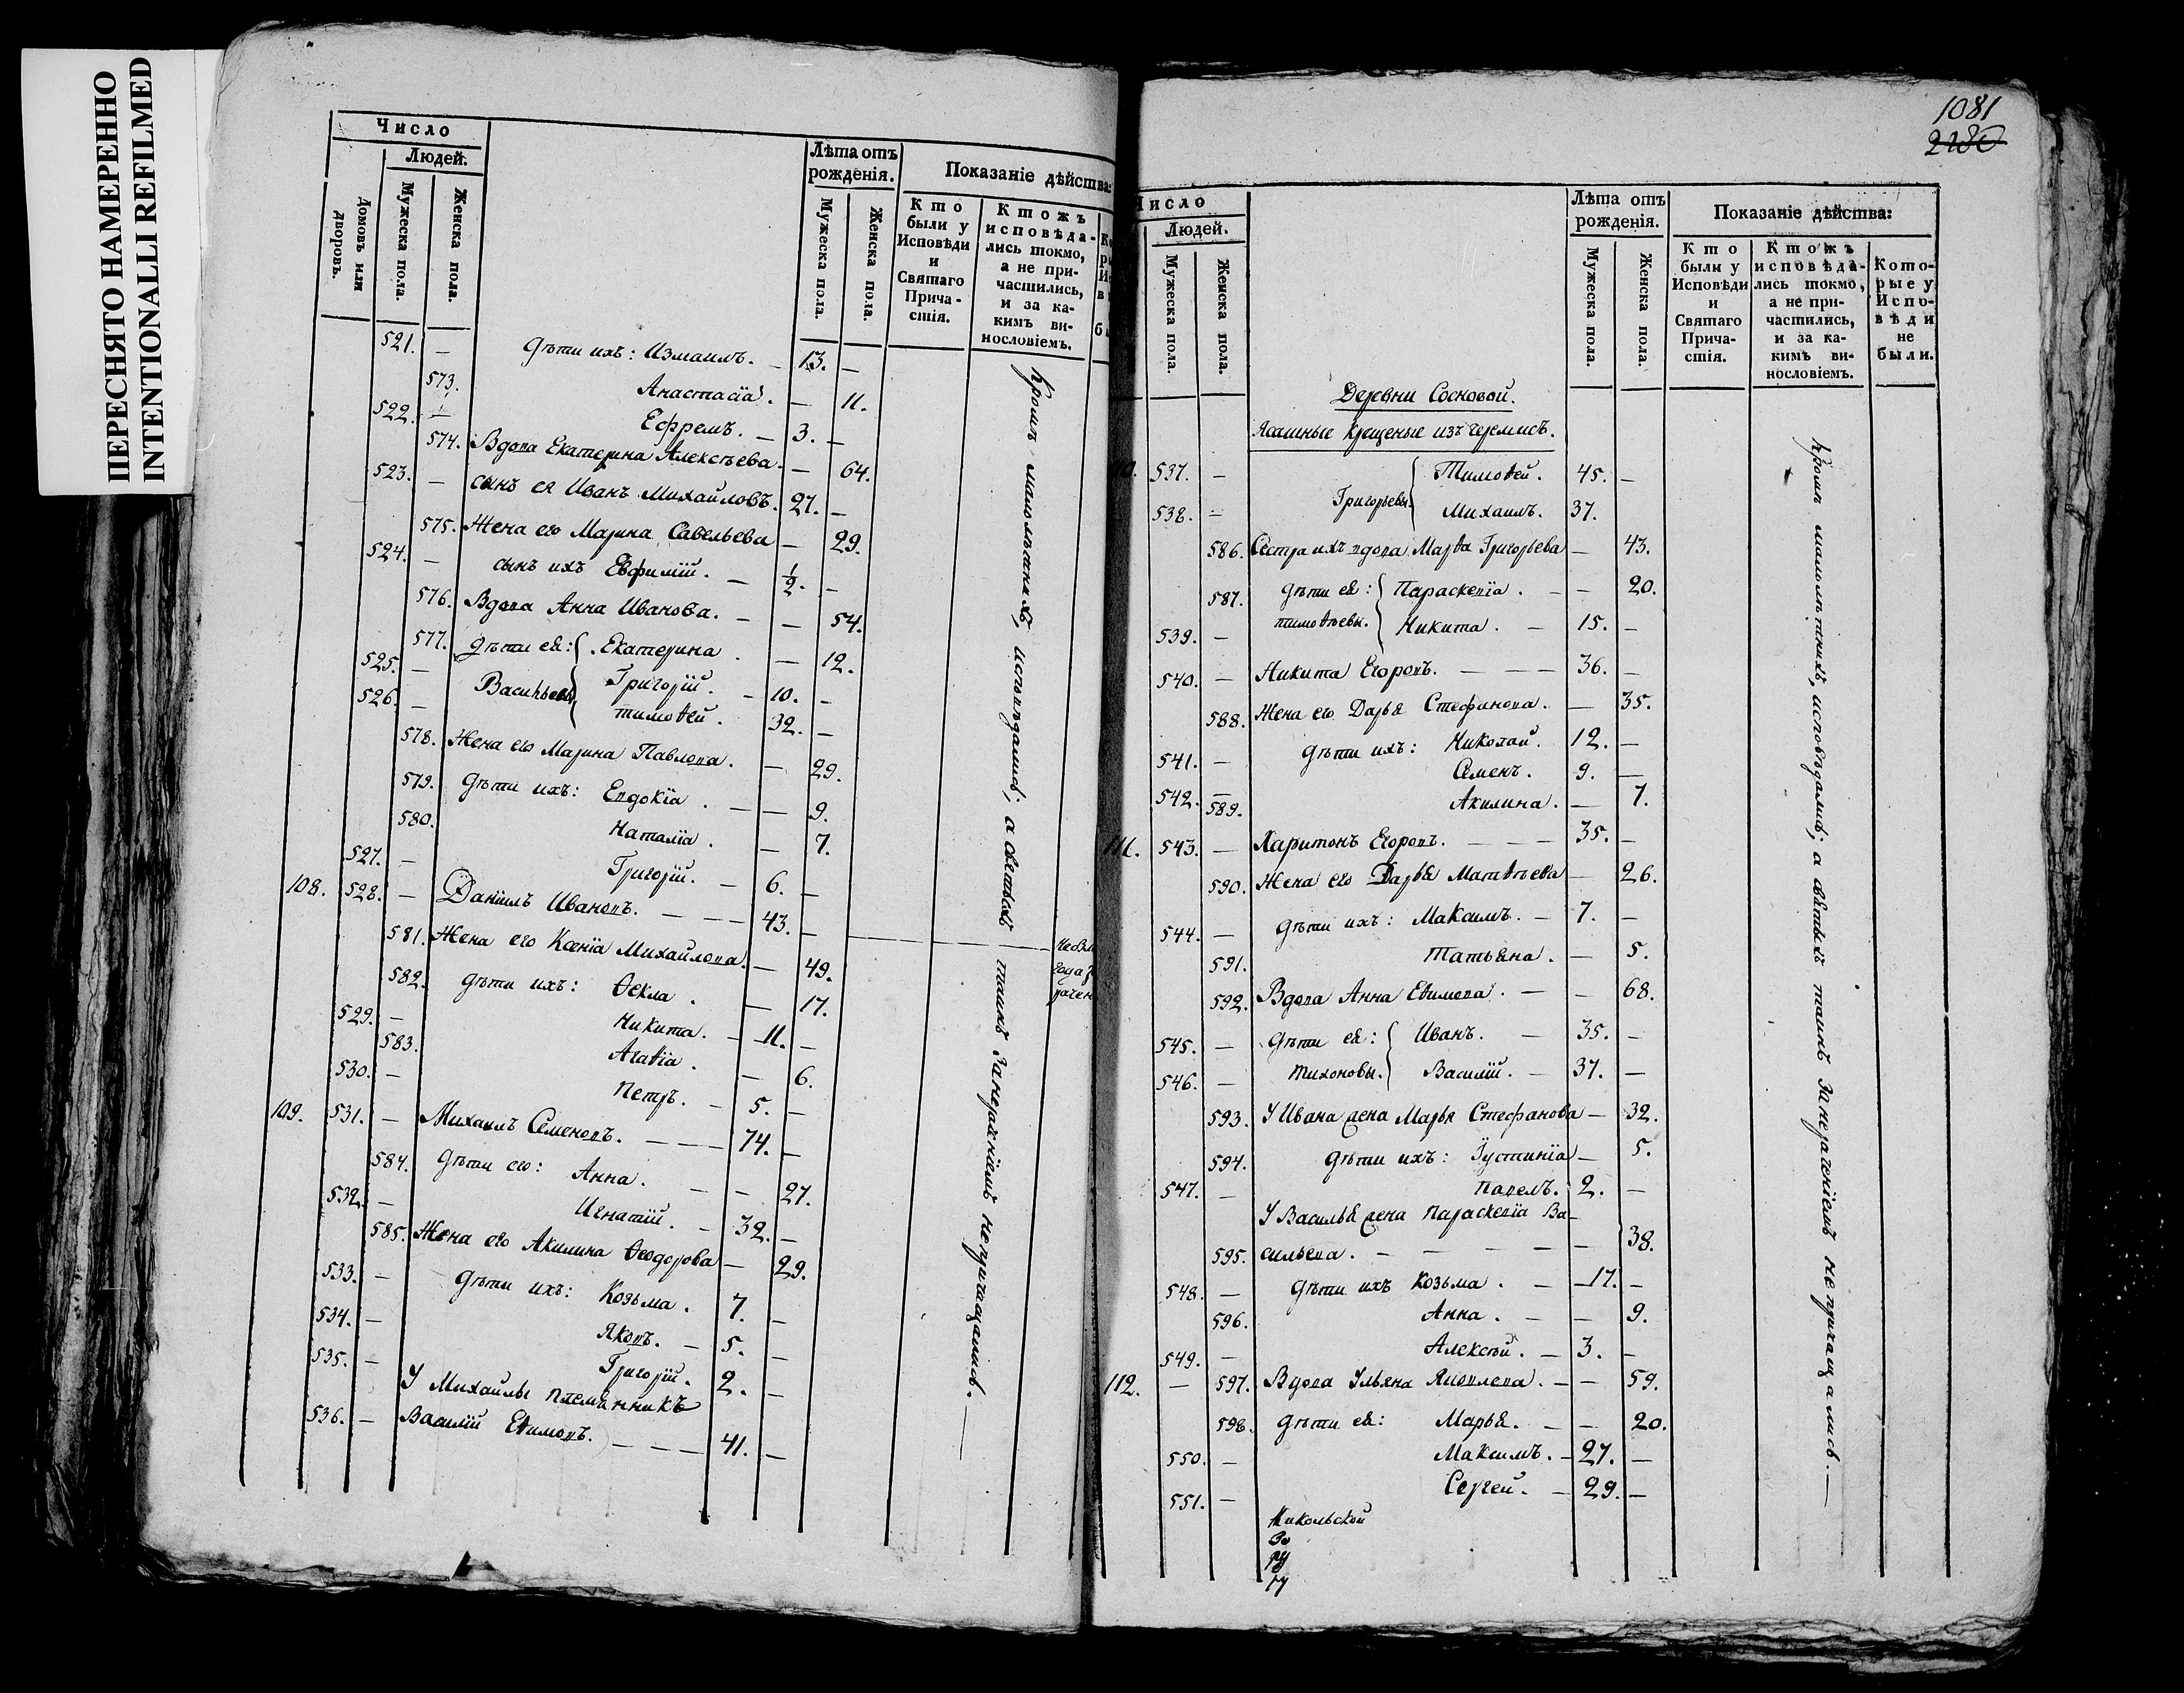 ПЕРЕСНЯТО НАМЕРЕННО
INTENTIONALLI REFILMED
Число
Людей.
Домовъ или дворовъ.
Мужеска пола.
Женска пола.
Лѣта отъ рожденія.
Мужеска пола.
Женска пола.
Показаніе дѣйства:
Кто были у Исповѣди и Святаго Прича-стія.
Ктожъ исповѣда-лись токмо, а не при-частились, и за ка-кимъ ви-нословіемъ.
521. — дѣти ихъ: Измаилъ. — 13. —
573. Анастасіа. — 11.
522. — Ефремъ. — 3. —
574. Вдова Екатерина Алексѣева. — 64.
523. — сынъ ея Иванъ Михайловъ. 27. —
575. Жена его Марина Савельева — 29.
524. — сынъ ихъ Евфимій. — 1/2. —
576. Вдова Анна Иванова. — — 54.
577. дѣти ея: Екатерина. — 12.
525. — Васильевы Григорій. — 10. —
526. — тимоѳей. 32. —
578. Жена его Марина Павлова. — 29.
579. дѣти ихъ: Евдокіа. — — 9.
580. Наталіа. — 7.
527. — Григорій. — 6. —
108. 528. — Даніилъ Ивановъ. — — — 43. —
581. Жена его Ксеніа Михайлова. — 49.
582. дѣти ихъ: Ѳекла. — 17.
529. — Никита. — 11. —
583. Агаѳіа. — 6.
530. — Петръ. — 5. —
109. 531. — Михаилъ Семеновъ. — — — 74. —
584. дѣти его: Анна. — — 27.
532. — Игнатій. — 32. —
585. Жена его Акилина Ѳеодорова — 29.
533. — дѣти ихъ: Козьма. 7. —
534. — Яковъ. — 5. —
535. — Григорій. 2. —
У Михайлы племянникъ
536. — Василій Еѳимовъ. — — — 41. —
Кромѣ малолѣтнихъ, исповѣдались; а святыхъ таинъ занераченіемъ непричащались. —
1081
2280
Число
Людей.
Мужеска пола.
Женска пола.
Лѣта отъ рожденія.
Мужеска пола.
Женска пола.
Показаніе дѣйства:
Кто были у Исповѣди и Святаго Прича-стія.
Ктожъ исповѣда-лись токмо, а не при-частились, и за ка-кимъ ви-нословіемъ.
Кото-рые у Испо-вѣди не были.
Деревни Сосновой.
Ясашные крещеные изъ черемисъ.
537. — Григорьевы. Тимоѳей. 45. —
538. — Михаилъ. 37.
586. Сестра ихъ вдова Марѳа Григорьева — 43.
587. дѣти ея: Параскевіа. — — 20.
539. — тимоѳѣевы. Никита. — 15. —
540. — Никита Егоровъ. — — — 36. —
588. Жена его Дарья Стефанова. — 35.
541. — дѣти ихъ: Николай. 12. —
542. — Семенъ. 9. —
589. Акилина. — 7.
111. 543. — Харитонъ Егоровъ. — — — 35. —
590. Жена его Дарья Матвѣева — 26.
544. — дѣти ихъ: Максимъ. — 7. —
591. Татьяна. — 5.
592. Вдова Анна Еѳимова. — — 68.
545. — дѣти ея: Иванъ. — 35. —
546. — тихоновы. Василій. — 37. —
593. У Ивана жена Марья Стефанова — 32.
594. дѣти ихъ: Іустиніа — 5.
547. — Павелъ. 2. —
У Василья жена Параскевіа Ва-
595. сильева. — — — — — 38.
548. — дѣти ихъ Козьма. — 17. —
596. Анна. — — 9.
549. — Алексѣй. — 3. —
112. — 597. Вдова Ульяна Яковлева. — — 59.
598. дѣти ея: Марья. — — 20.
550. — Максимъ. — 27. —
551. — Сергей. — 29. —
Никольской
Кромѣ малолѣтнихъ, исповѣдались; а святыхъ таинъ занераченіемъ не причащались. —